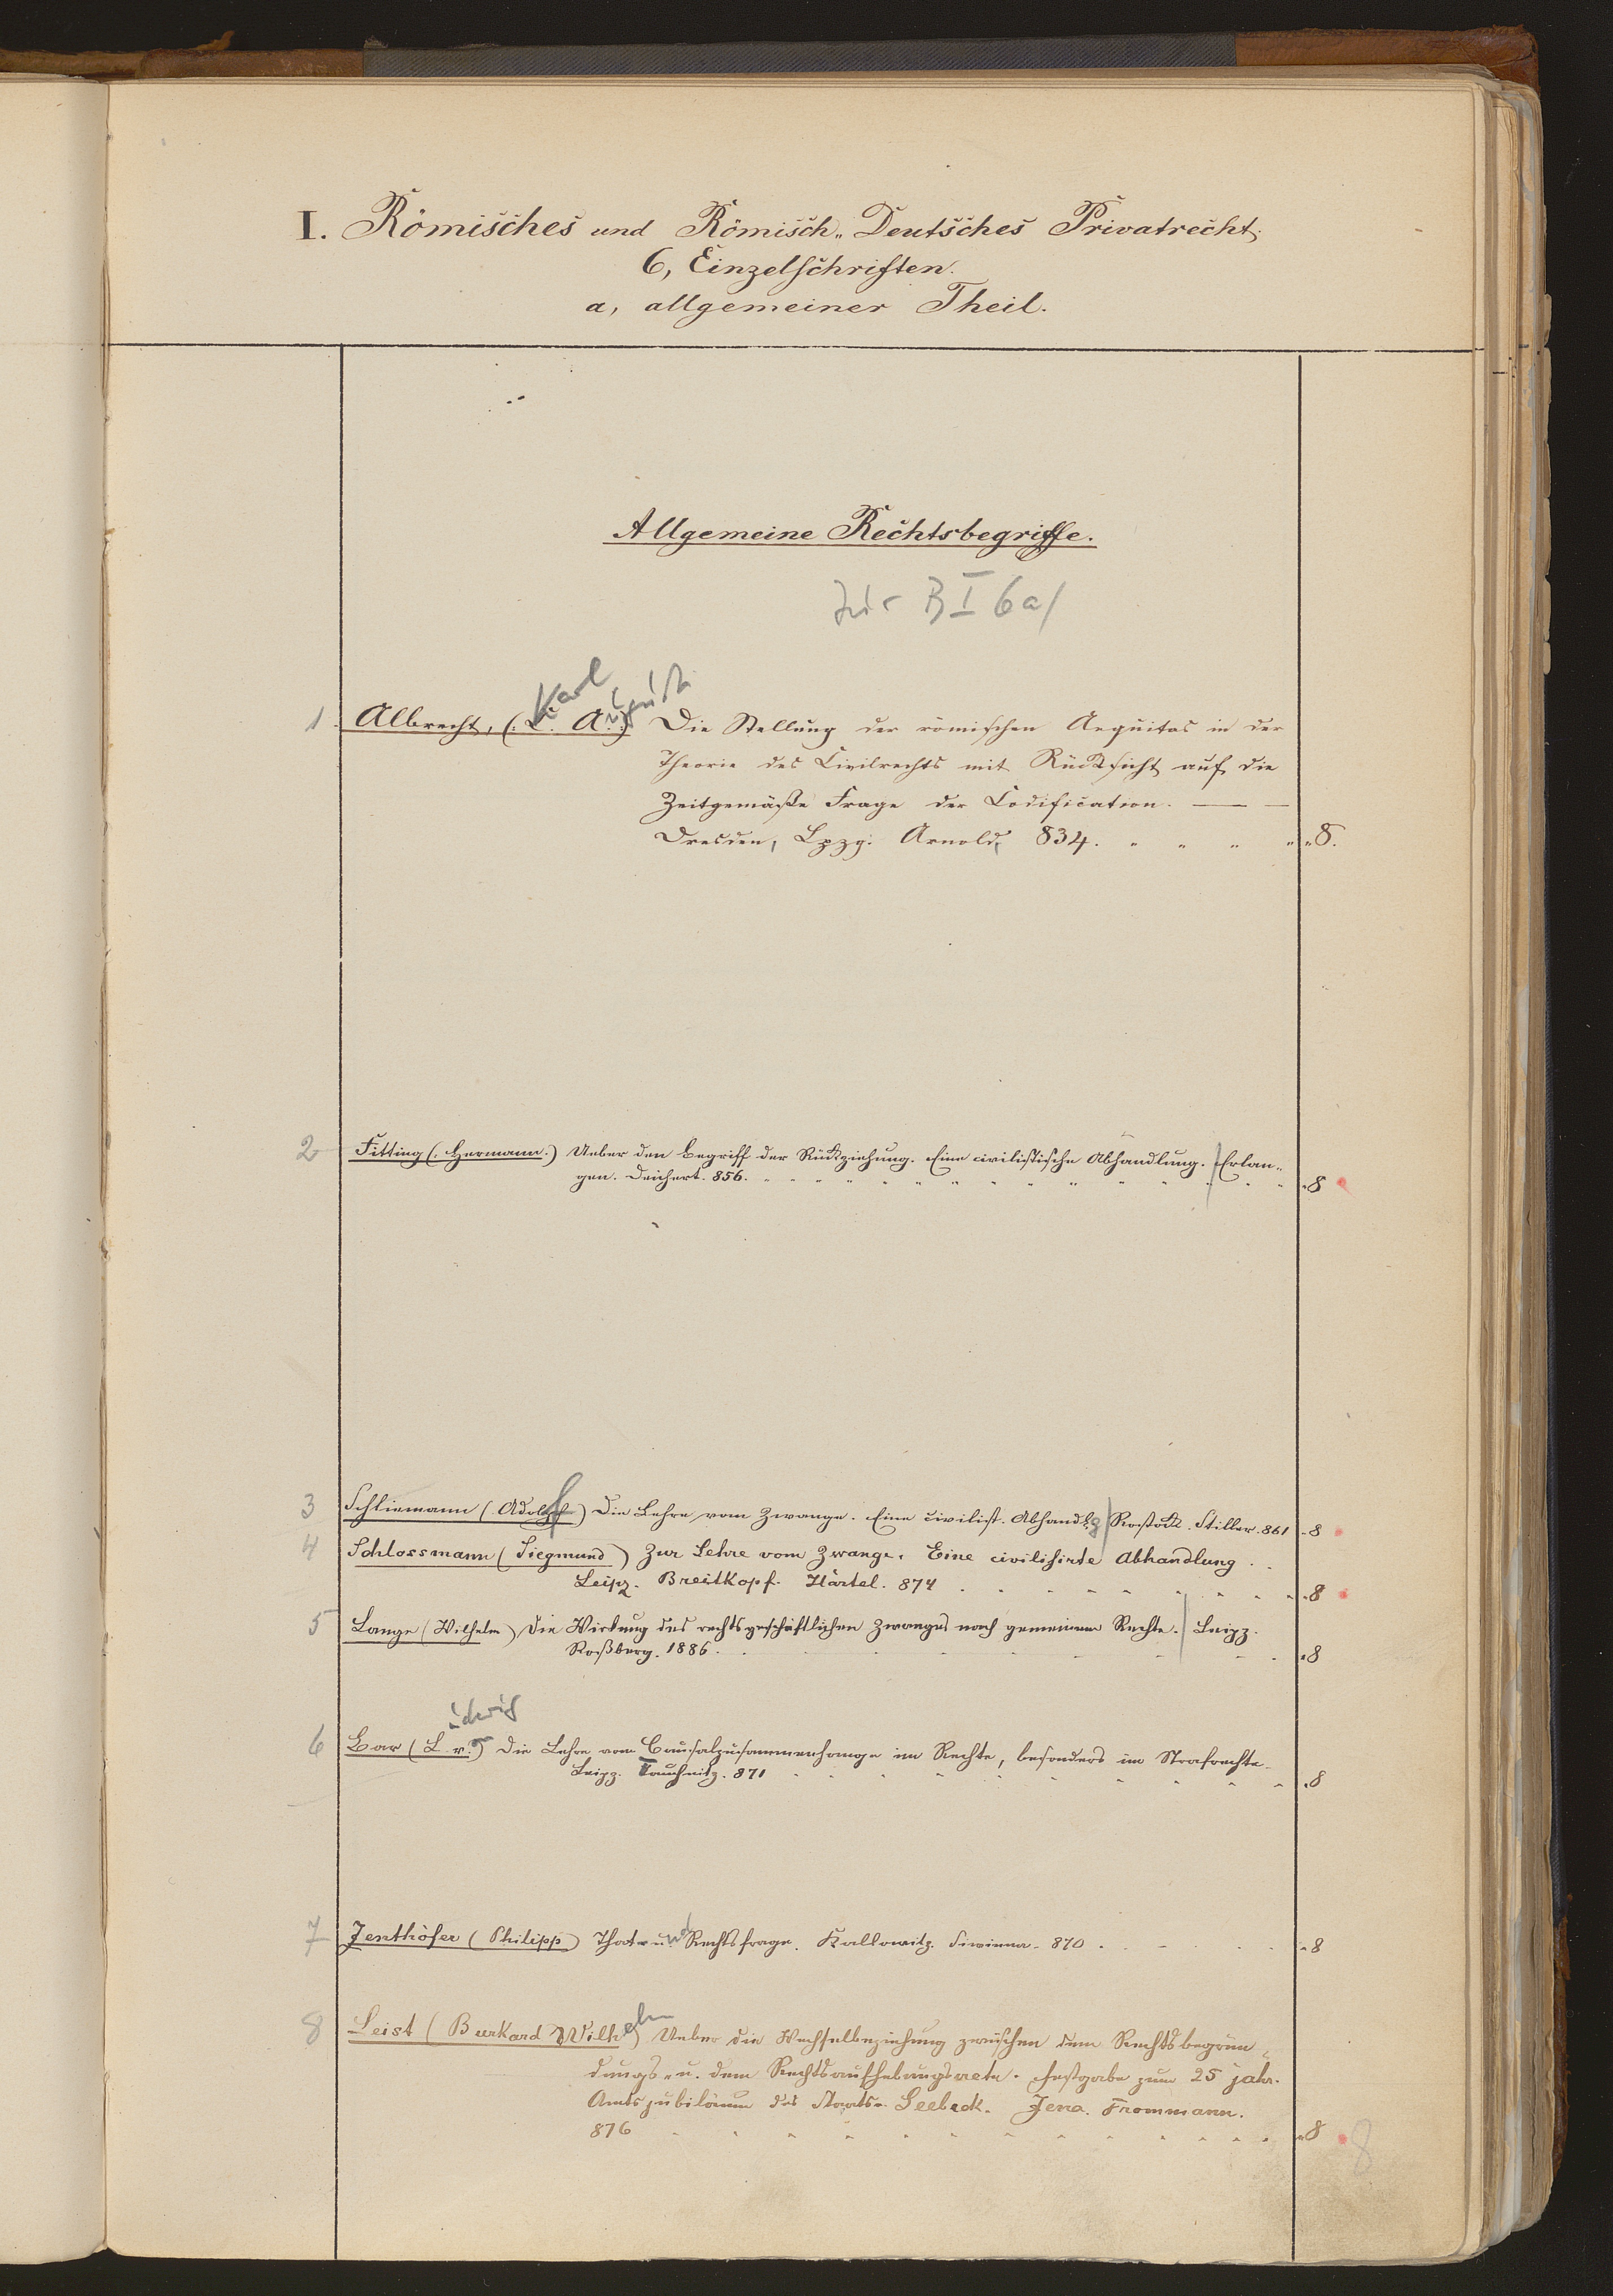 I. Römisches und Römisch-Deutsches Privatrecht.
6, Einzelschriften.
a, allgemeiner Theil.
Allgemeine Rechtsbegriffe.
B I 6a/
Karl August
1 Albrecht, (: A.:) Die Stellung der römischen Aequitas in der
Theorie des Civilrechts mit Rücksicht auf die
Zeitgemäße Frage der Codification. —
Dresden, Lpzg. Arnold, 834. " " " " "8.
2 Fitting (: Hermann:) Ueber den Begriff der Rückziehung. Eine civilistische Abhandlung. Erlan-
gen. Deichert. 856. "8
3 Schliemann (Adolf) Die Lehre vom Zwange. Eine civilist. Abhandlg Rostock. Stiller. 861 "8
4 Schlossmann (Siegmund) Zur Lehre vom Zwange. Eine civilisirte Abhandlung.
Leipz. Breitkopf. Härtel. 874 "8
5 Lange (Wilhelm) Die Wirkung des rechtsgeschäftlichen Zwanges nach gemeinem Rechte. Leipz.
Roßberg. 1886. "8
udwig
6 Bar (L. v.) Die Lehre vom Causalzusammenhange im Rechte, besonders im Strafrechte.
Leipz. Tauchnitz. 871 "8
7 Jenthöfer (Philipp) That- und Rechtsfrage. Kattowitz. Siwinna. 870. "8
8 Leist (Burkard Wilhelm) Ueber die Wechselbeziehung zwischen dem Rechtsbegrün-
dungs- u. dem Rechtsaufhebungsacte. Festgabe zum 25 jahr.
Amtsjubiläum des Staatsr. Seebeck. Jena. Frommann.
876 "8 8